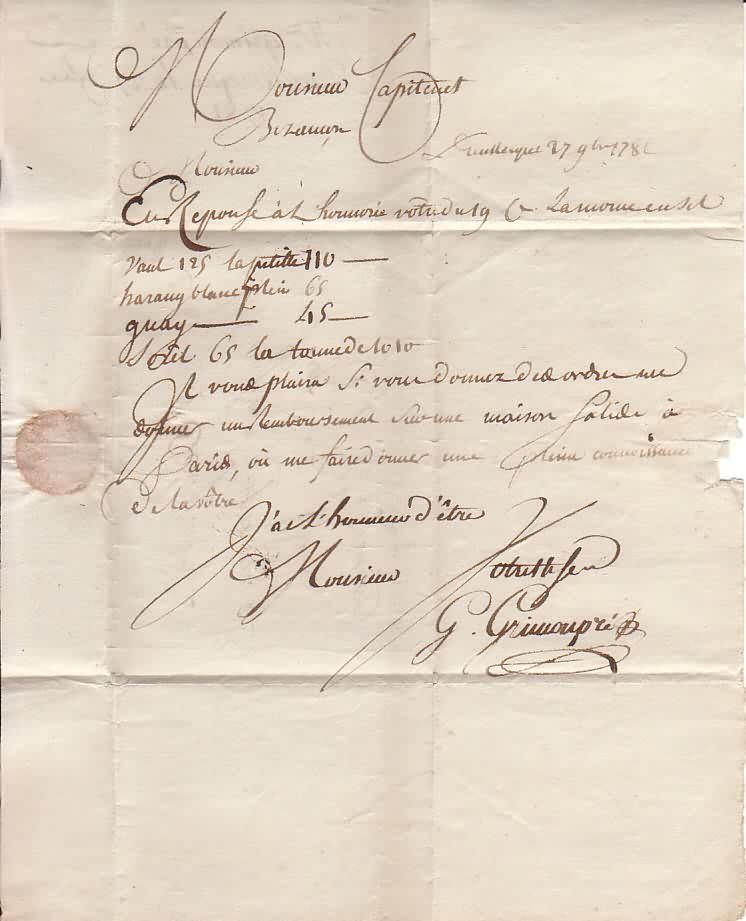 Monsieur Capitenet
Bezançon
Dunkerque 27 9bre 178
Monsieur
En Reponse à L honnorée votre du 19 Ct. La morue en sel
Vaut 125 la petitte 110
harang blanc plein 65
guay 45
Soret 65 la tonne de 1010
Il vous plaira Si vous donnez des ordres me
donner un Remboursement Sur une maison Solide à
Paris, où me faire donner une pleine connoissance
de la vôtre
J'ai L'honneur d'être
Monsieur Votre
G. Grimonpréz